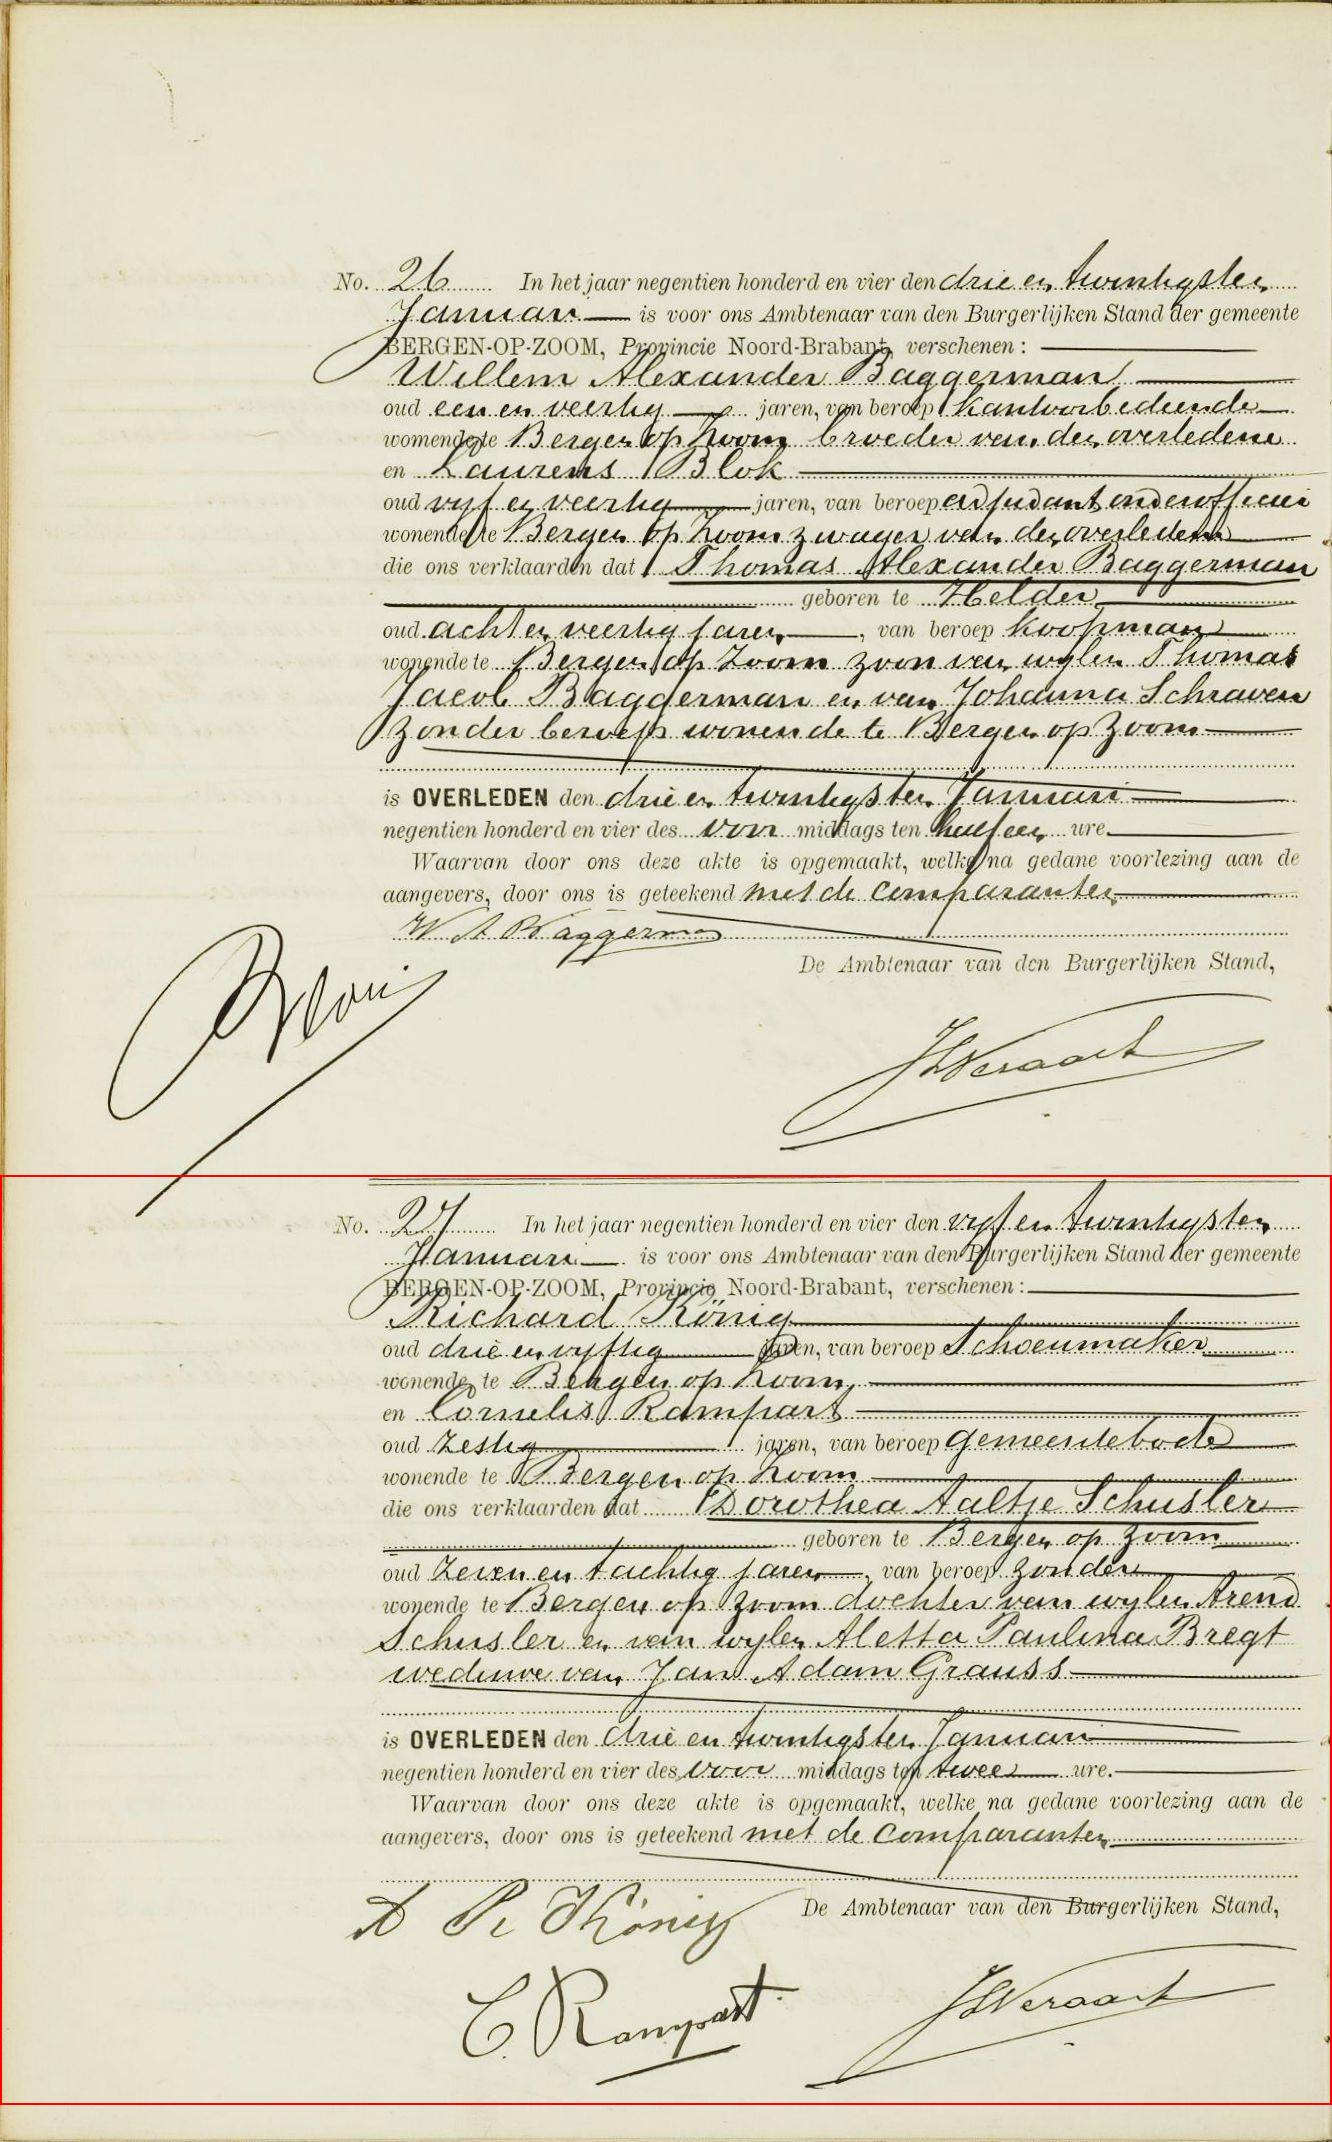 No. 26 In het jaar negentien honderd en vier den drie en twintigsten
Januari is voor ons Ambtenaar van den Burgerlijken Stand der gemeente
BERGEN-OP-ZOOM, Provincie Noord-Brabant, verschenen:
Willem Alexander Baggerman
oud een en veertig jaren, van beroep kantoorbediende
womende te Bergen op Zoom broeder van den overledene
en Laurens Blok
oud vyf en veertig jaren, van beroep adjudant onderofficier
wonende te Bergen op Zoom zwager van den overledene
die ons verklaarden dat Thomas Alexander Baggerman
geboren te Helder
oud acht en veertig jaren, van beroep koopman
wonende te Bergen op Zoom zoon van wylen Thomas
Jacob Baggerman en van Johanna Schraven
zonder beroep wonende te Bergen op Zoom
is OVERLEDEN den drie en twintigsten Januari
negentien honderd en vier des voor middags ten half een ure.
Waarvan door ons deze akte is opgemaakt, welke na gedane voorlezing aan de
aangevers, door ons is geteekend met de comparanten
W A Baggerman
De Ambtenaar van den Burgerlijken Stand,
JLVeraart
No. 27 In het jaar negentien honderd en vier den vyf en twintigsten
Januari is voor ons Ambtenaar van den Burgerlijken Stand der gemeente
BERGEN-OP-ZOOM, Provincie Noord-Brabant, verschenen:
Richard König
oud drie en vyftig jaren, van beroep Schoenmaker
wonende te Bergen op Zoom,
en Cornelis Rampart
oud zestig jaren, van beroep gemeentebode
wonende te Bergen op Zoom
die ons verklaarden dat Dorothea Aaltje Schusler
geboren te Bergen op Zoom
oud zeven en tachtig jaren, van beroep zonder
wonende te Bergen op Zoom dochter van wylen Arend
Schusler en van wylen Aletta Paulina Bregt
weduwe van Jan Adam Grauss
is OVERLEDEN den drie en twintigsten Januari
negentien honderd en vier des voor middags ten twee ure.
Waarvan door ons deze akte is opgemaakt, welke na gedane voorlezing aan de
aangevers, door ons is geteekend met de comparanten
De Ambtenaar van den Burgerlijken Stand,
König
C. Rampart
JLVeraart